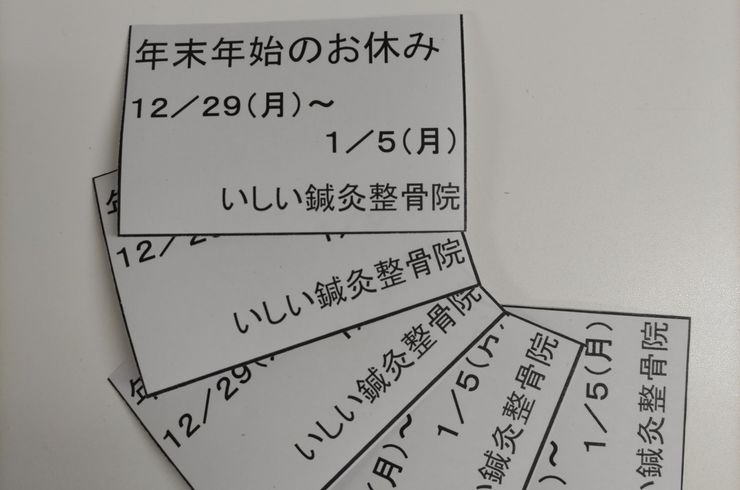 年末年始のお休み
12／29(月)～
1／5(月)
いしい鍼灸整骨院
12／2
いしい鍼灸整骨院
12／29(
いしい鍼灸整骨院
1／5(月)
(月)～
鍼灸整骨院
1／5(月)
)～
い鍼灸整骨院